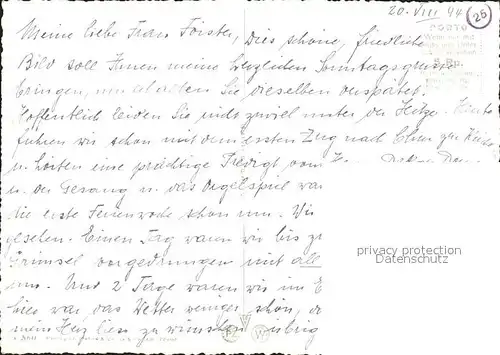 20. VIII 44 25
Meine liebe Frau Förster, Dies schöne, friedliche
PORTO
Bild soll Ihnen meine herzlichen Sonntagsgrüsse
bringen, erhalten Sie dieselben verspätet.
Hoffentlich leiden Sie nicht zuviel unter der Hitze. Heute
fuhren wir schon mit dem ersten Zug nach Chur zur Kirche
u. hörten eine prächtige Predigt vom
u. der Gesang u. das Orgelspiel war
die erste Ferienwoche schon um. Wir
gesehen. Einen Tag waren wir bis zu
Grimsel vorgedrungen mit all
uns. Und 2 Tage waren wir im E
hier war das Wetter weniger schön, d
mein Herz liess zu wünschen übrig
privacy protection
Datenschutz